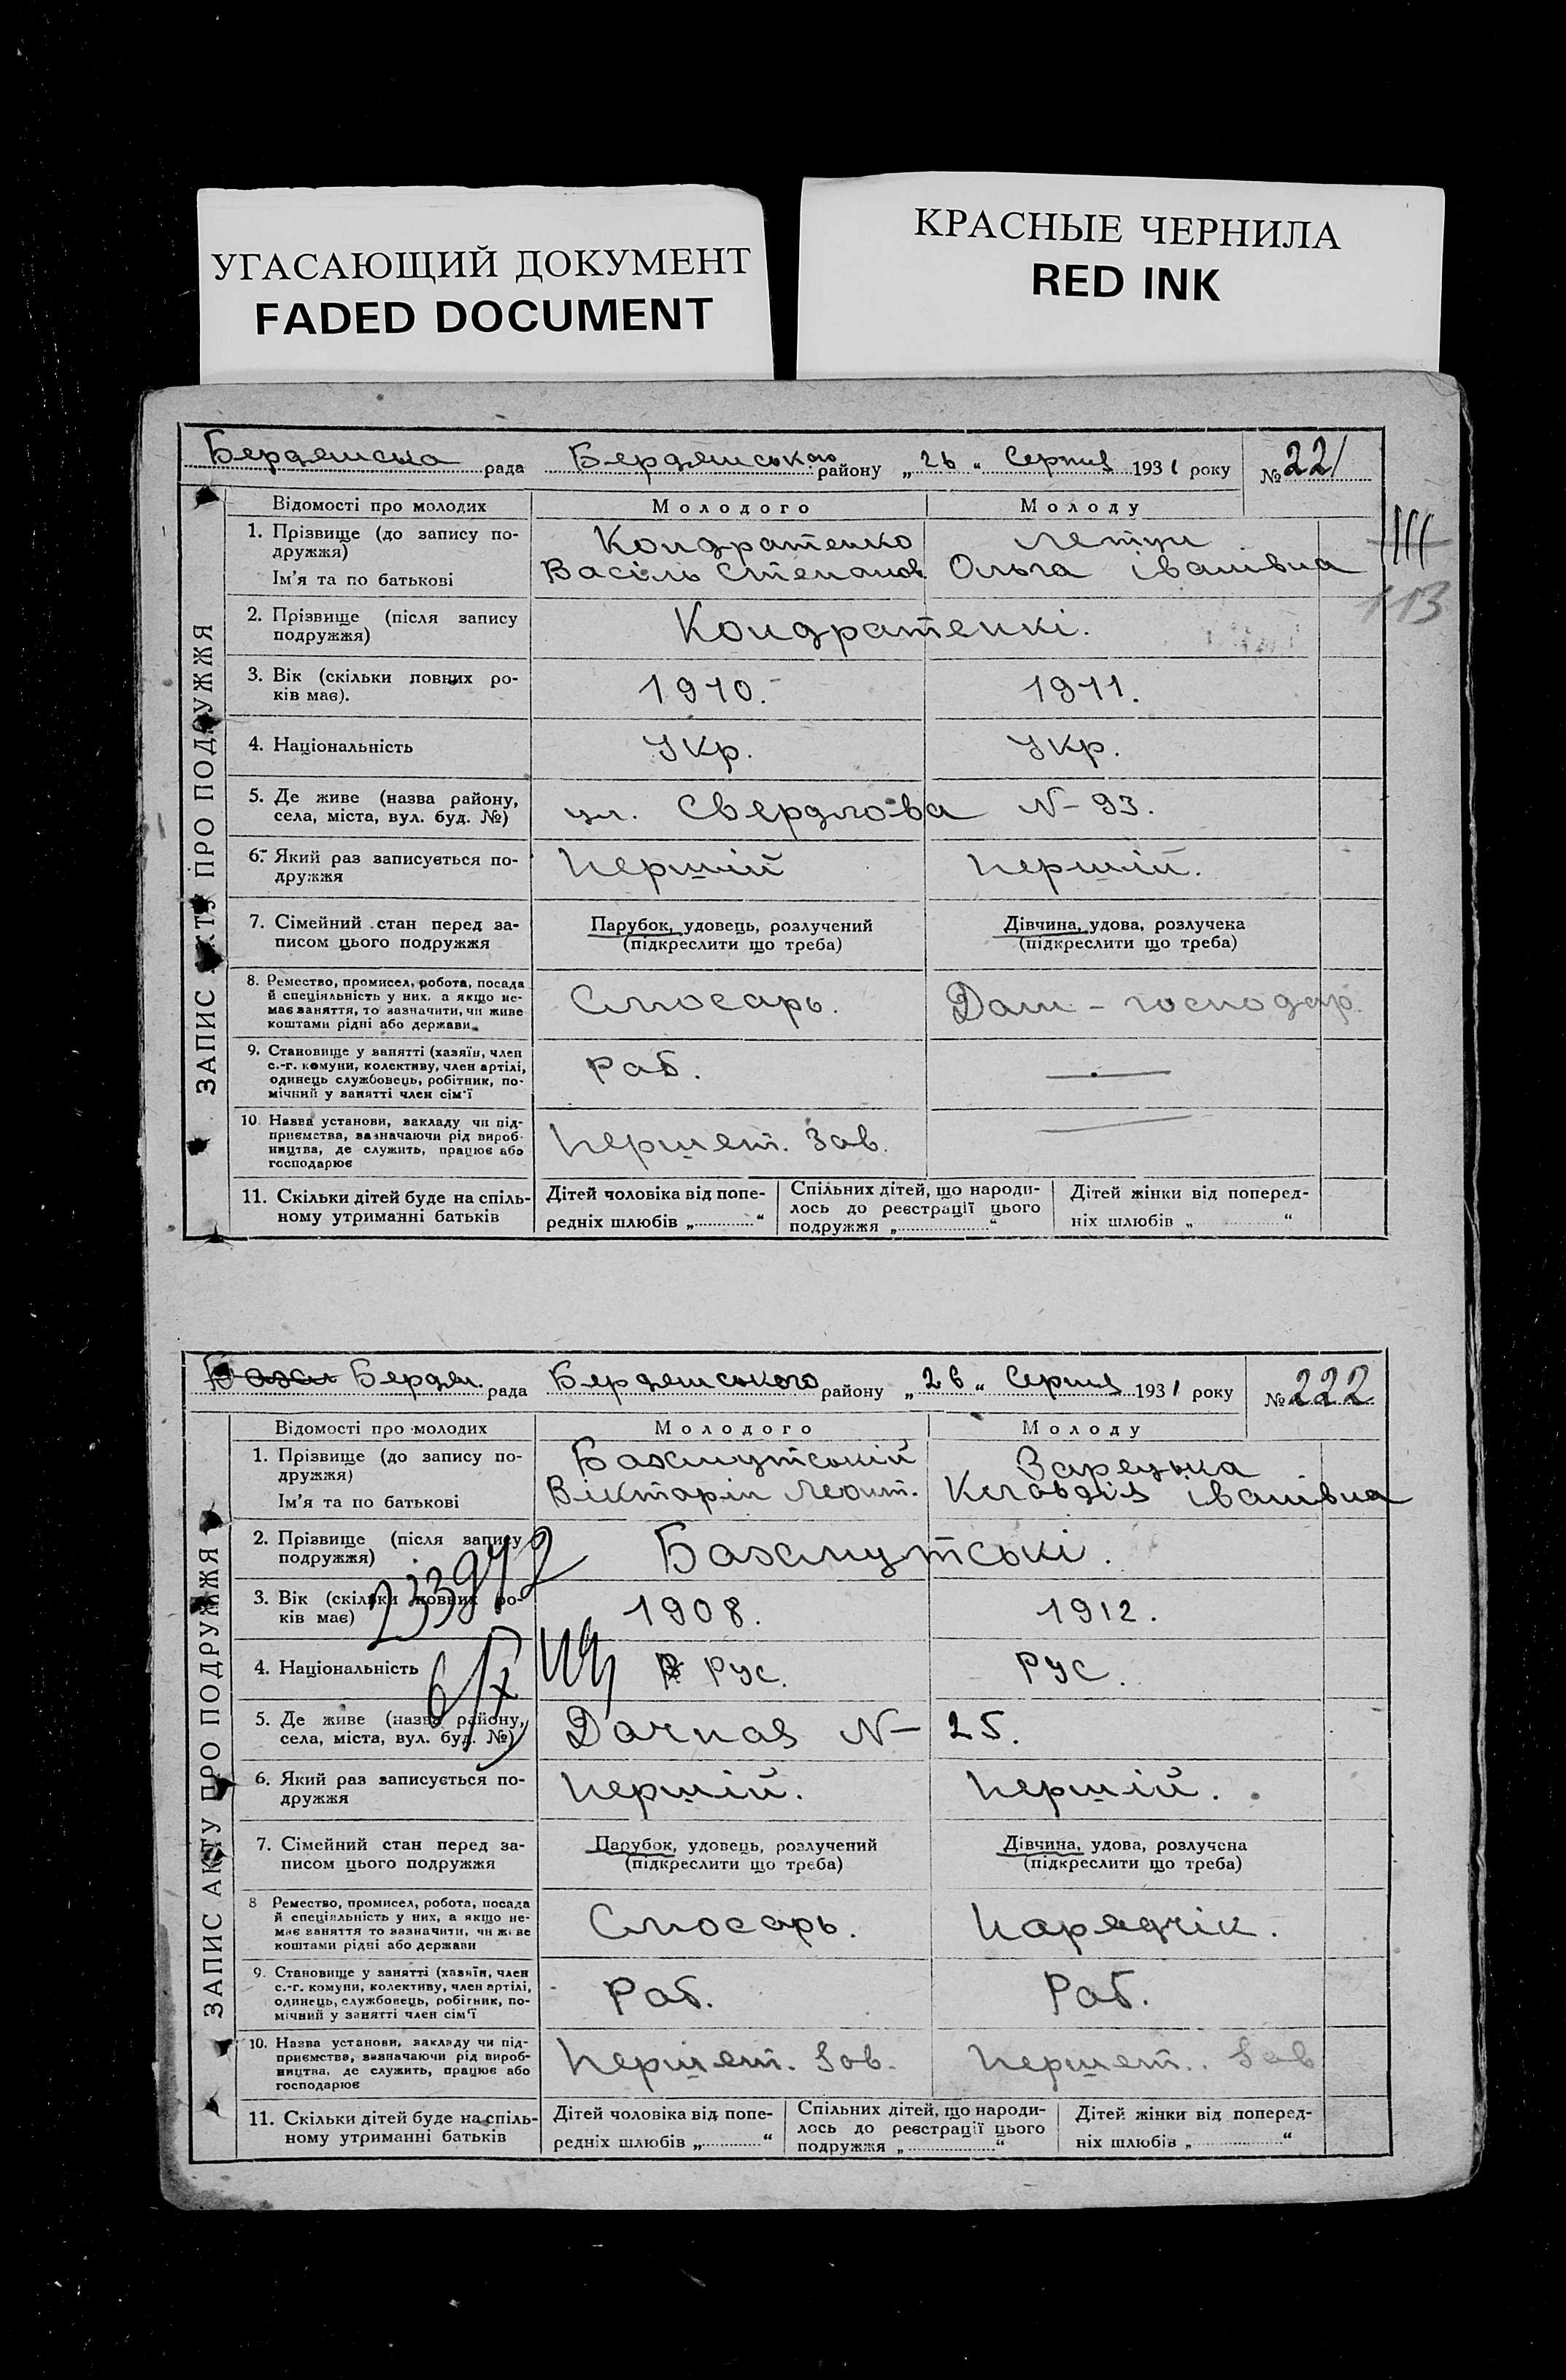 УГАСАЮЩИЙ ДОКУМЕНТ
FADED DOCUMENT
КРАСНЫЕ ЧЕРНИЛА
RED INK
Бердянська рада Бердянського району „26“ Серпня 1931 року № 221
113
ЗАПИС АКТУ ПРО ПОДРУЖЖЯ
Відомості про молодих Молодого Молоду
1. Прізвище (до запису по-
дружжя)
Кондратенко
Ім'я та по батькові
Васіль Степанов Ольга Іванівна
2. Прізвище (після запису
подружжя)
Кондратенкі.
3. Вік (скільки повних ро-
ків має).
1910. 1911.
4. Національність Укр. Укр.
5. Де живе (назва району,
села, міста, вул. буд. №)
ул. Свердлова N- 93.
6. Який раз записується по-
дружжя
Першій Першій.
7. Сімейний стан перед за-
писом цього подружжя
Парубок, удовець, розлучений
(підкреслити що треба)
Дівчина, удова, розлучека
(підкреслити що треба)
8. Ремество, промисел, робота, посада
й спеціяльність у них, а якщо не-
має заняття, то зазначити, чи живе
коштами рідні або держави
Слюсарь. Дом - господар.
9. Становище у занятті (хазяїн, член
с.-г. комуни, колективу, член артілі,
одинець службовець, робітник, по-
мічний у занятті член сім'ї
Раб. —
10. Назва установи, закладу чи під-
приємства, зазначаючи рід вироб-
ництва, де служить, працює або
господарює
Першет. Зав. —
11. Скільки дітей буде на спіль-
ному утриманні батьків
Дітей чоловіка від попе-
редніх шлюбів „ “
Спільних дітей, що народи-
лось до реєстрації цього
подружжя „ “
Дітей жінки від поперед-
ніх шлюбів „ “
Бердян. рада Бердянського району „26“ Серпня 1931 року № 222
ЗАПИС АКТУ ПРО ПОДРУЖЖЯ
Відомості про молодих Молодого Молоду
1. Прізвище (до запису по-
дружжя)
Бахмутській Зарецька
Ім'я та по батькові
Віктарін Леонт. Клавдія Іванівна
2. Прізвище (після запису
подружжя)
Бахмутські.
3. Вік (скільки повних ро-
ків має)
1908. 1912.
4. Національність Рус. Рус.
5. Де живе (назва району,
села, міста, вул. буд. №)
Дачная N- 25.
6. Який раз записується по-
дружжя
Першій. Першій.
7. Сімейний стан перед за-
писом цього подружжя
Парубок, удовець, розлучений
(підкреслити що треба)
Дівчина, удова, розлучена
(підкреслити що треба)
8 Ремество, промисел, робота, посада
й спеціяльність у них, а якщо не-
має заняття то зазначити, чи живе
коштами рідні або держави
Слюсарь. Нарядчік.
9. Становище у занятті (хазяїн, член
с.-г. комуни, колективу, член артілі,
одинець, службовець, робітник, по-
мічний у занятті член сім'ї
Раб. Раб.
10. Назва установи, закладу чи під-
приємства, зазначаючи рід вироб-
ництва, де служить, працює або
господарює
Першет. Зав. Першет. Зав
11. Скільки дітей буде на спіль-
ному утриманні батьків
Дітей чоловіка від попе-
редніх шлюбів „ “
Спільних дітей, що народи-
лось до реєстрації цього
подружжя „ “
Дітей жінки від поперед-
ніх шлюбів „ “